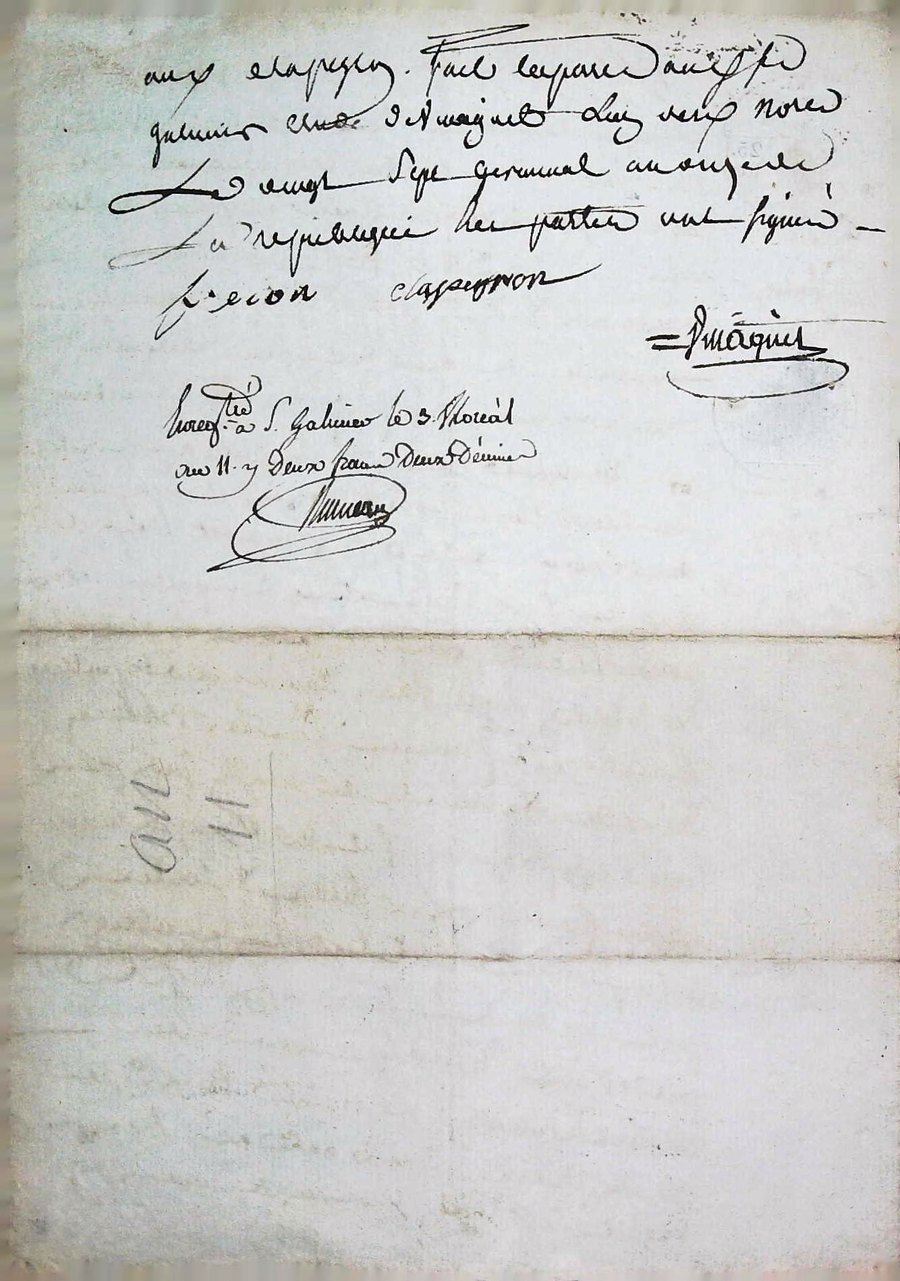 aux clapeyron. fait et passé audit st
galmier etude d'Amaginel L'un deux notes
Le vingt Sept germinal an onze de
La republique les parties ont signé
clapeyron
Enregtré à St. Galmier le 3. floréal
an 11. r deux francs Deux Décimes
an
11